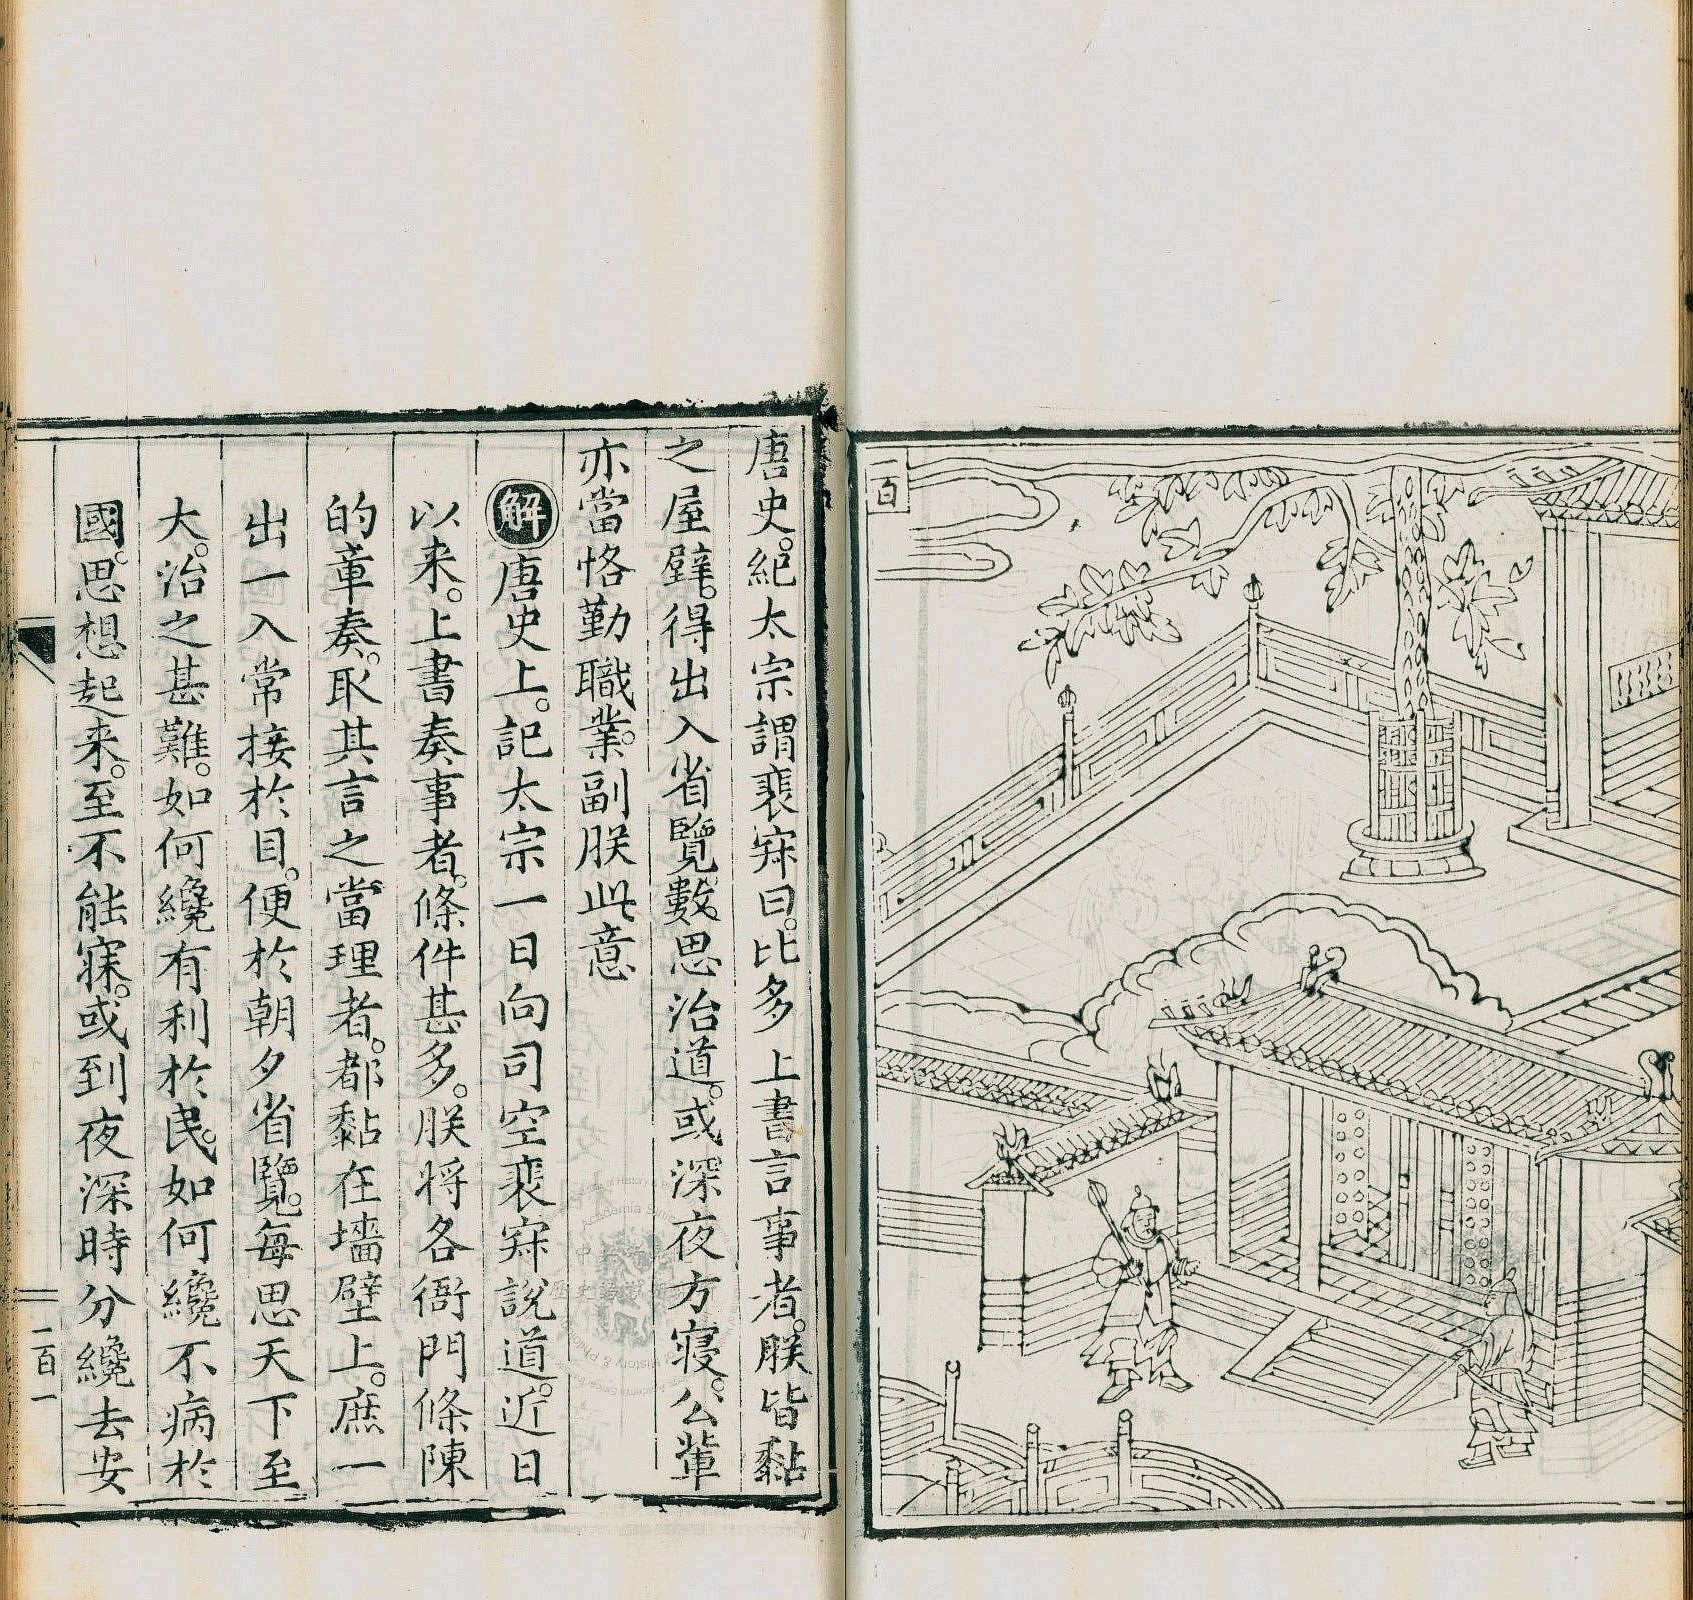 二百
唐史。紀太宗謂裴寂曰。比多上書言事者。朕皆黏
之屋壁。得出入省覽。數思治道。或深夜方寢。公輩
亦當恪勤職業。副朕此意
解 唐史上。記太宗一日向司空裴寂說道。近日
以来。上書奏事者。條件甚多。朕将各衙門條陳
的章奏。取其言之當理者。都黏在墻壁上。庶一
出一入常接於目。便於朝夕省覽。每思天下至
大。治之甚難。如何纔有利於民。如何纔不病於
國。思想起来。至不能寐。或到夜深時分纔去安
二百一